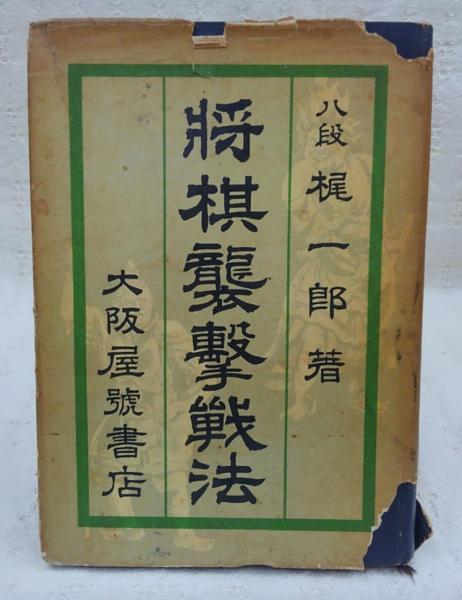 八段 梶一郎著
將棋襲擊戰法
大阪屋號書店